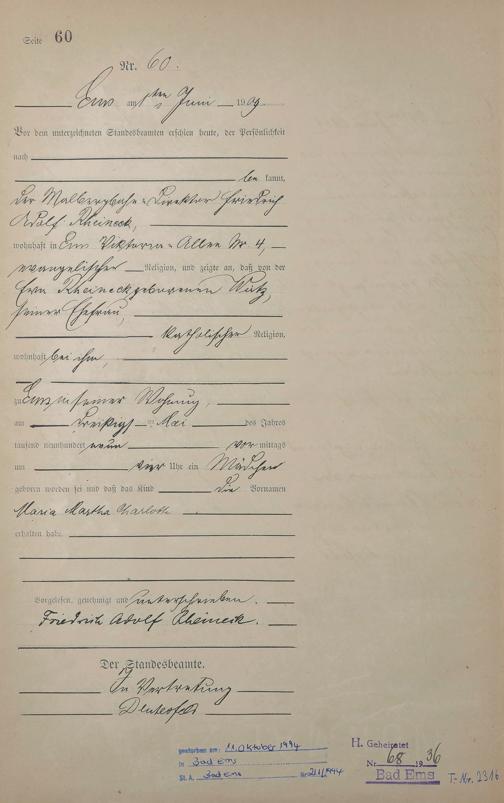 Seite 60
Nr. 60.
Ems am 1ten Juni 1909
Vor dem unterzeichneten Standesbeamten erschien heute, der Persönlichkeit
nach
be kannt,
der Malbergbahn-Direktor Friedrich
Adolf Rheineck,
wohnhaft in Ems Viktoria-Allee Nr. 4,
evangelischer Religion, und zeigte an, daß von der
Rheineck geborenen
seiner Ehefrau,
katholischer Religion,
wohnhaft bei ihm,
zu Ems in seiner Wohnung,
am dreißigsten Mai des Jahres
tausend neunhundert neun vor mittags
um vier Uhr ein Mädchen
geboren worden sei und daß das Kind die Vornamen
Maria Martha Charlotte
erhalten habe.
Vorgelesen, genehmigt und unterschrieben.
Friedrich Adolf Rheineck.
Der Standesbeamte.
In Vertretung
gestorben am: 11. Oktober 1994
in Bad Ems
St. A. Bad Ems Nr.
H. Geheiratet
Nr. 68 1936
Bad Ems T.-Nr. 2316